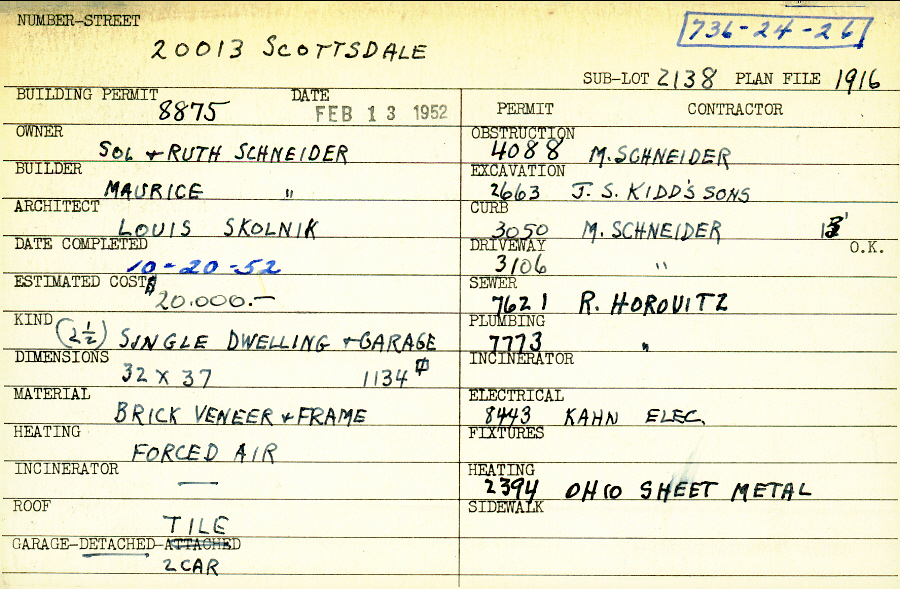 NUMBER-STREET
20013 SCOTTSDALE
736-24-26
SUB-LOT 2138 PLAN FILE 1916
BUILDING PERMIT 8875 DATE FEB 13 1952
OWNER
SOL + RUTH SCHNEIDER
BUILDER
MAURICE "
ARCHITECT
LOUIS SKOLNIK
DATE COMPLETED
10-20-52
ESTIMATED COST
$20.000.—
KIND
(2½) SINGLE DWELLING + GARAGE
DIMENSIONS
32 X 37 1134
MATERIAL
BRICK VENEER + FRAME
HEATING
FORCED AIR
INCINERATOR
—
ROOF
TILE
GARAGE-DETACHED-ATTACHED
2 CAR
PERMIT CONTRACTOR
OBSTRUCTION
4088 M. SCHNEIDER
EXCAVATION
2663 J. S. KIDD'S SONS
CURB
3050 M. SCHNEIDER
DRIVEWAY O.K.
3106 "
SEWER
7621 R. HOROVITZ
PLUMBING
7773 "
INCINERATOR
ELECTRICAL
8443 KAHN ELEC.
FIXTURES
HEATING
2394 OHIO SHEET METAL
SIDEWALK